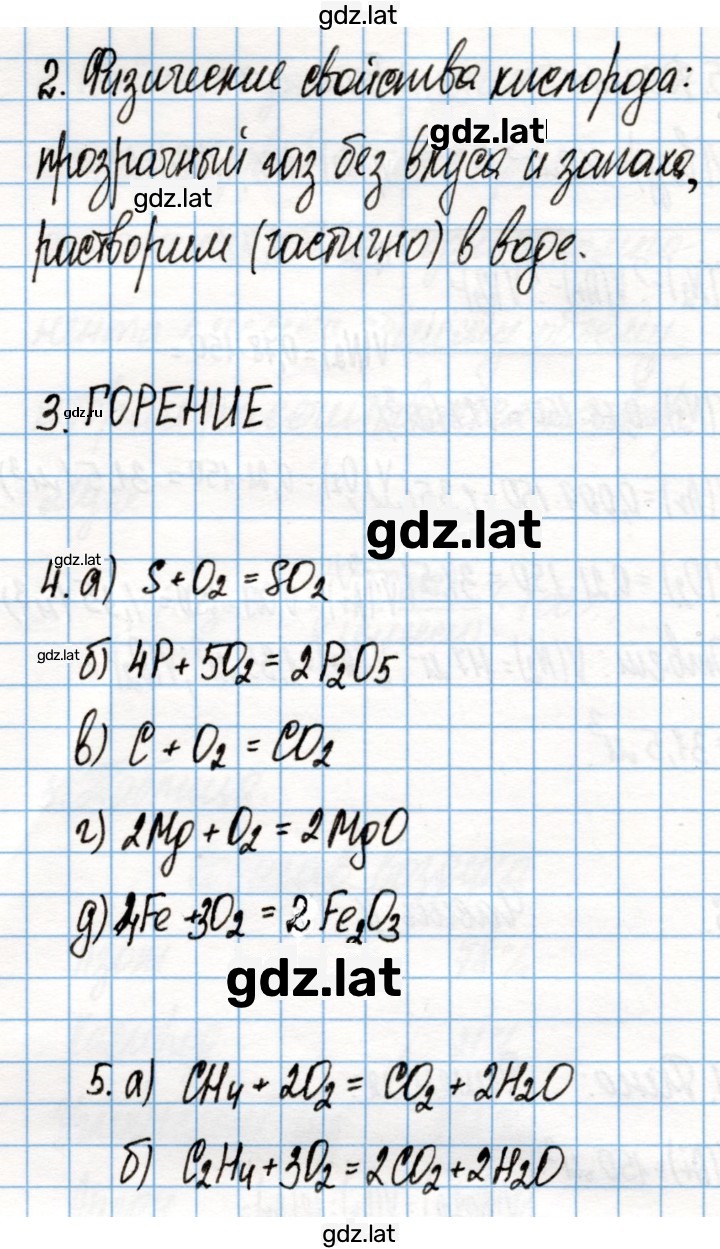 gdz.lat
2. Физические свойства кислорода:
gdz.lat
прозрачный газ без вкуса и запаха,
gdz.lat
растворим (частично) в воде.
3. ГОРЕНИЕ
gdz.ru
gdz.lat
gdz.lat
4. а) S + O₂ = SO₂
gdz.lat
б) 4P + 5O₂ = 2P₂O₅
в) C + O₂ = CO₂
г) 2Mg + O₂ = 2MgO
д) 4Fe + 3O₂ = 2Fe₂O₃
gdz.lat
5. а) CH₄ + 2O₂ = CO₂ + 2H₂O
б) C₂H₄ + 3O₂ = 2CO₂ + 2H₂O
gdz.lat